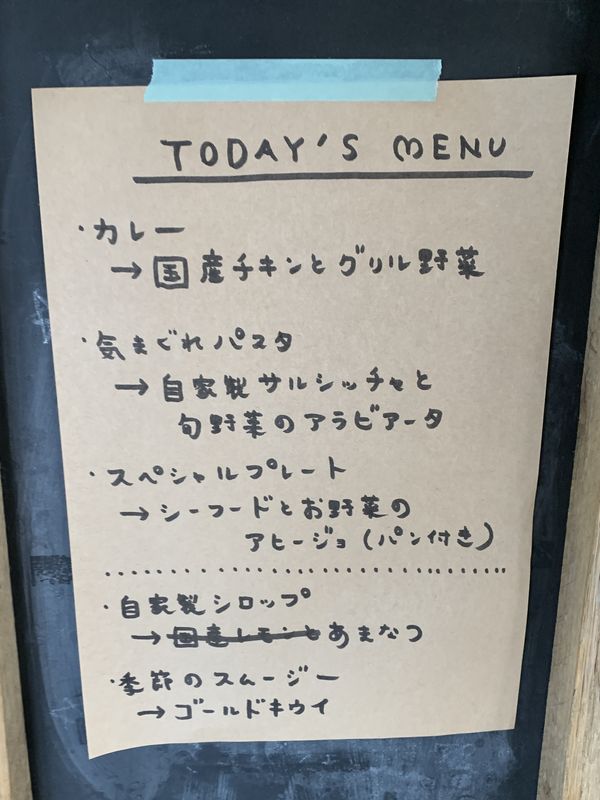 TODAY'S MENU
・カレー
→国産チキンとグリル野菜
・気まぐれパスタ
→自家製サルシッチャと
旬野菜のアラビアータ
・スペシャルプレート
→シーフードとお野菜の
アヒージョ(パン付き)
・自家製シロップ
→国産レモンとあまなつ
・季節のスムージー
→ゴールドキウイ